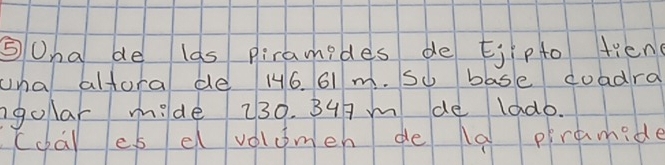 ⑤ Una de las piramides de Ejipto tiene
una altura de 146.61 m. Su base cuadra
ngular mide 230.347 m de lado.
Cuál es el volúmen de la piramide